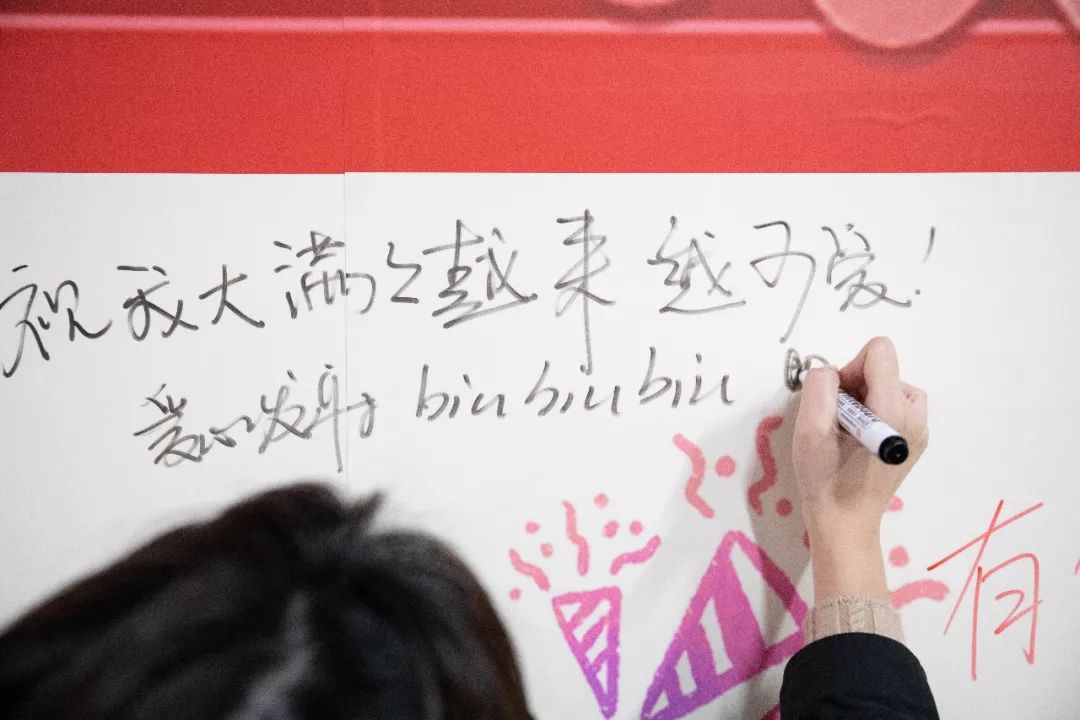 祝我大满心越来越可爱！
爱心发射 biu biu biu
有